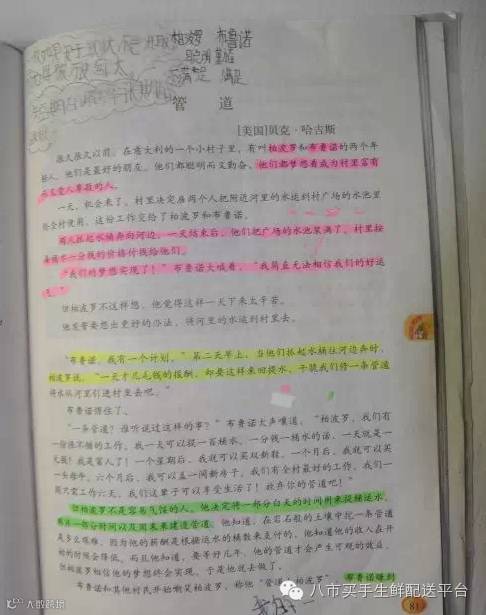 柏波罗 布鲁诺
满足
管 道
[美国]贝克·哈吉斯
很久很久以前，在意大利的一个小村子里，有叫柏波罗和布鲁诺的两个年
轻人，他们是最好的朋友，他们都聪明而又勤奋，他们都梦想着成为村里富有
而且受人尊敬的人。
一天，机会来了，村里决定雇两个人把附近河里的水运到村广场的水池里
供全村使用，这份工作交给了柏波罗和布鲁诺。
两人抓起水桶奔向河边，一天结束后，他们把广场的水池装满了，村里按
每桶水一分钱的价格付钱给他们。
“我们的梦想实现了！”布鲁诺大喊着，“我简直无法相信我们的好运
气。”
但柏波罗不这样想，他觉得这样一天下来太辛苦。
他发誓要想出更好的办法，将河里的水运到村里去。
“布鲁诺，我有一个计划。”第二天早上，当他们抓起水桶往河边奔时，
柏波罗说，“一天才几毛钱的报酬，却要这样来回提水，干脆我们修一条管道
将水从河里引进村里去吧。”
布鲁诺愣住了。
“一条管道？谁听说过这样的事？”布鲁诺大声嚷道，“柏波罗，我们有
一份很不错的工作，我一天可以提一百桶水，一分钱一桶水的话，一天就是一
元钱！我是富人了！一个星期后，我就可以买双新鞋，一个月后，我就可以买
一头母牛，六个月后，我可以盖一间新房子，我们有全村最好的工作，我们一
周只需工作六天，我们这辈子可以享受生活了！放弃你的管道吧！”
但柏波罗不是容易气馁的人，他决定将一部分白天的时间用来提桶运水，
用另一部分时间以及周末来建造管道。他知道，在岩石般的土壤中挖一条管道
是多么艰难，因为他的薪酬是根据运水的桶数来支付的，他知道他的收入在开
始的时候会降低，而且他知道，要等好几年，他的管道才会产生可观的效益。
但柏波罗相信他的梦想终会实现，于是他就去做了。
布鲁诺和其他村民开始嘲笑柏波罗，称他“管道人柏波罗”，布鲁诺赚到
81
八市买手生鲜配送平台